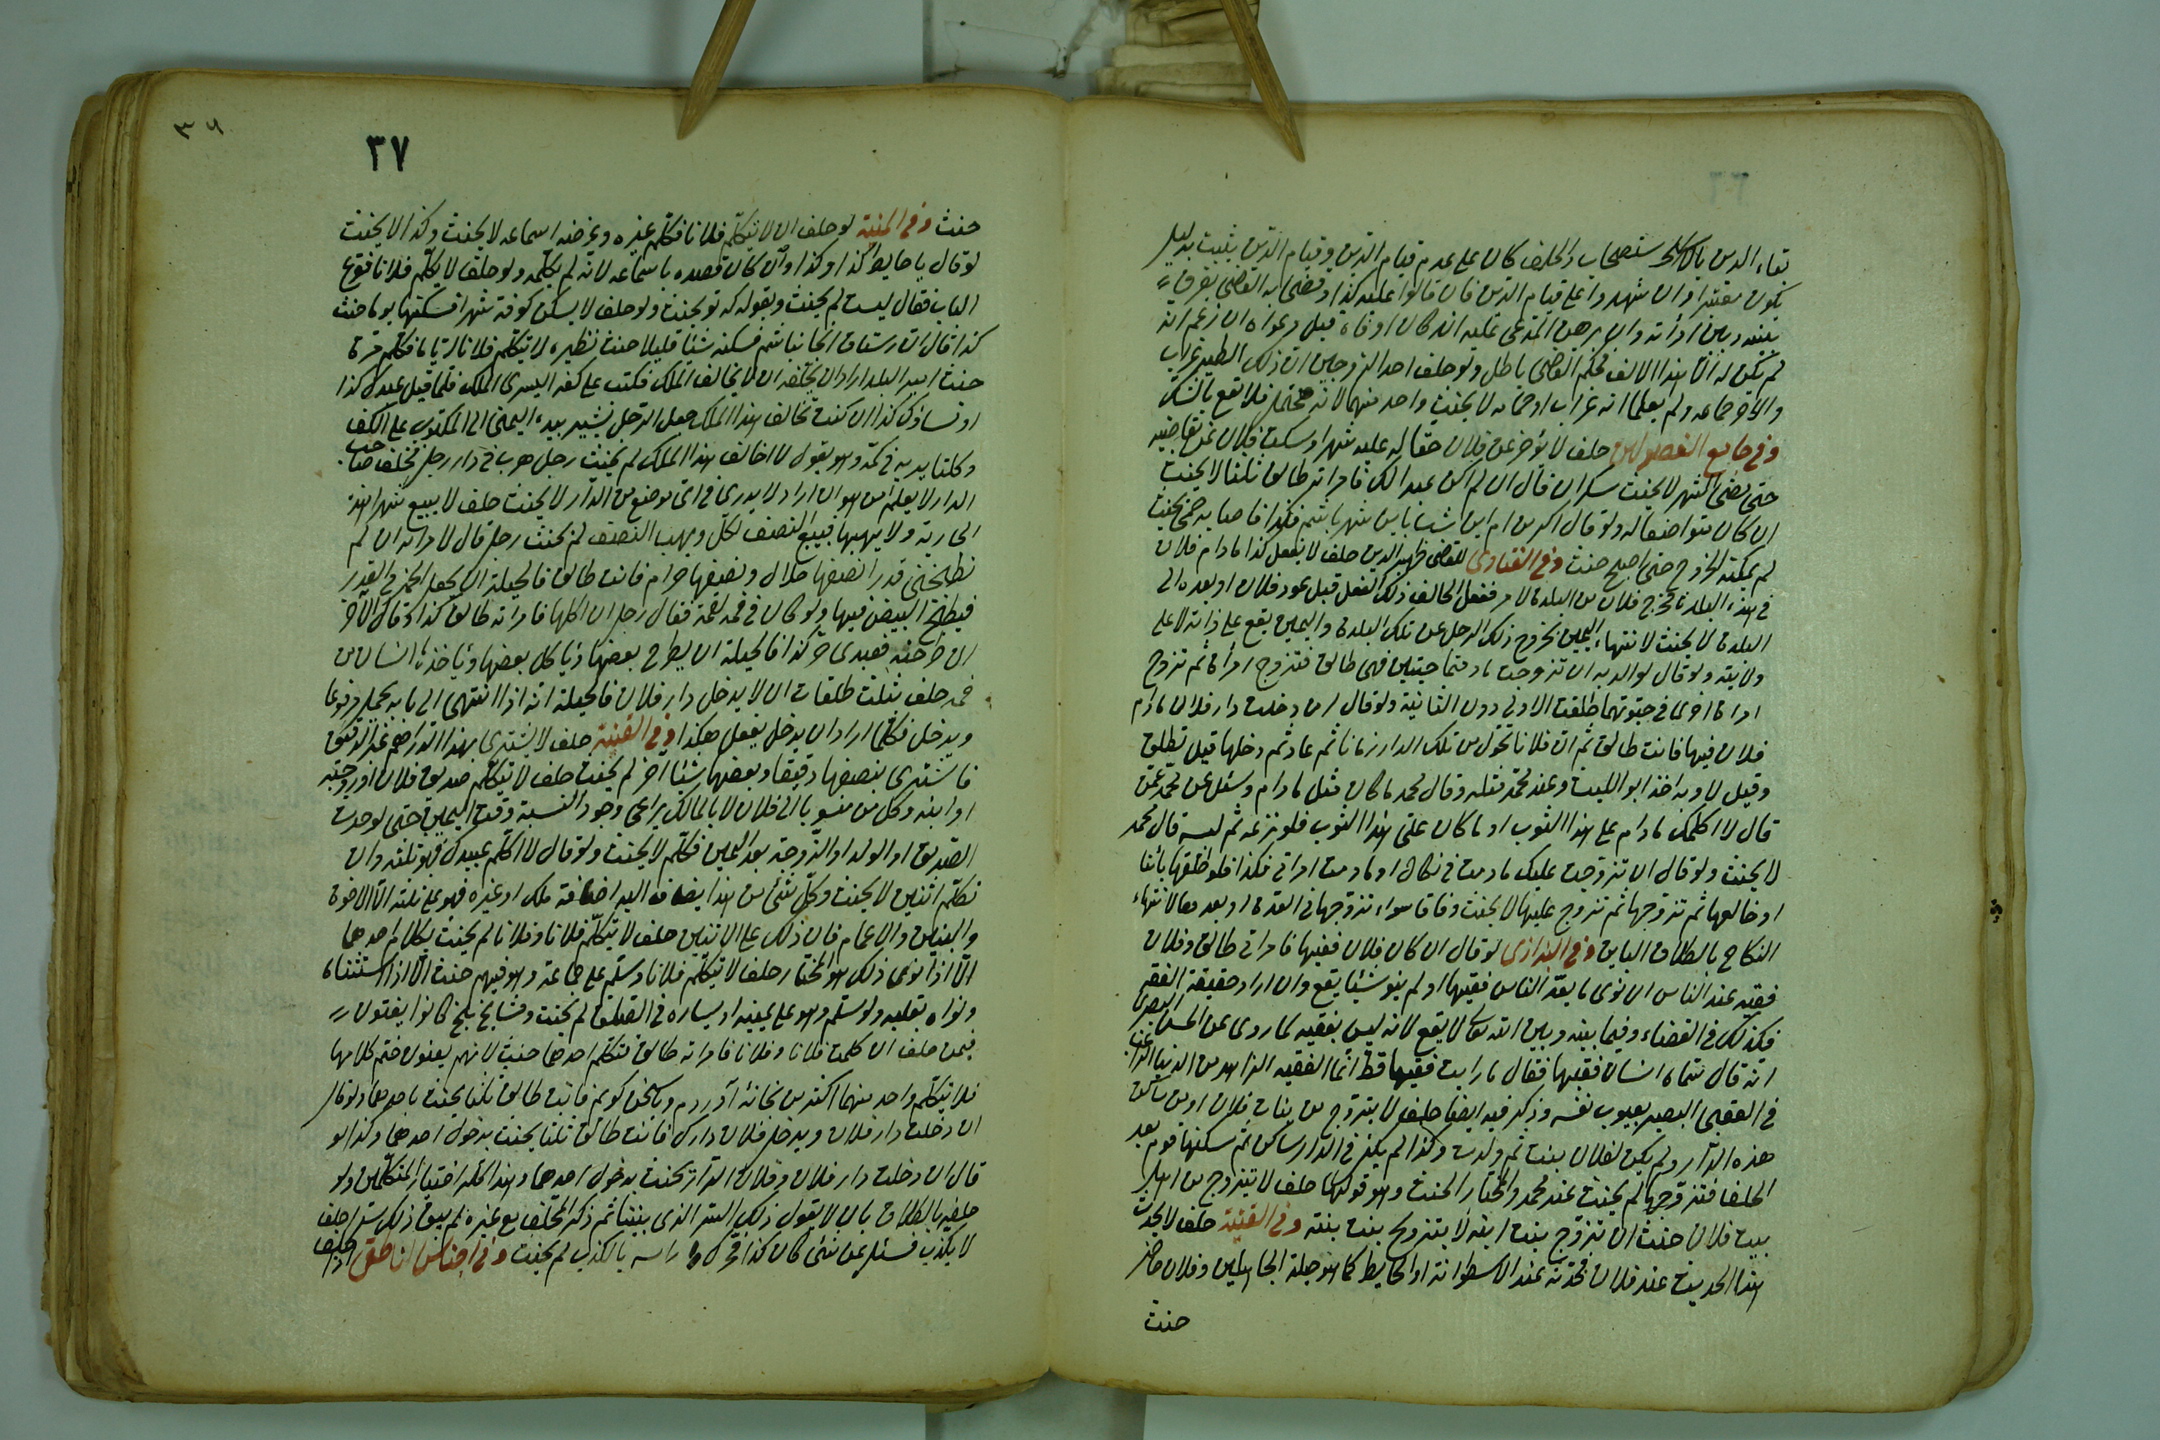 بقاء الدين بالاستصحاب والحلف كان على عدم قيام الدين وقيام الدين يثبت بدليل
يكون مقتصرا وان شهدوا على قيام الدين فان قالوا عليه كذا وقضى به القاضى يفرق
بينه وبين امرأته وان برهن المدعى عليه انه كان اوفاه قبل دعواه ان زعم انه
لم يكن له الا هذا الالف فحكم القاضى باطل ولو حلف احد الزوجين ان ذلك الطير غراب
والآخر حمامه ولم يعلما انه غراب او حمامه لا يحنث واحد منهما لانه محتمل فلا يقع بالشك
وفى جامع الفصولين حلف لا يؤخر عن فلان حقا له عليه شهرا وسكت فلان عن تقاضيه
حتى مضى الشهر لا يحنث سكران قال ان لم اكن عبدا لك فامراته طالق ثلثا لا يحنث
ان كان متواضعا له ولو قال اكر من امر اين شب باين شهر باشم فكذا فاصابه حمى بحيث
لم يمكنه الخروج حتى اصبح حنث وفى الفتاوى للقاضى ظهير الدين حلف لا يفعل كذا مادام فلان
فى هذه البلدة فخرج فلان من البلدة لامر ففعل الحالف ذلك الفعل قبل عود فلان او بعده الى
البلدة لا يحنث لانتهاء اليمين بخروج ذلك الرجل عن تلك البلدة واليمين يقع على ذاته لا على
ولايته ولو قال لوالديه ان تزوجت مادمتما حيتين فهى طالق فتزوج امرأة ثم تزوج
امرأة اخرى فى حيوتهما طلقت الاولى دون الثانية ولو قال ان دخلت دار فلان مادام
فلان فيها فانت طالق ثم ان فلانا تحول من تلك الدار زمانا ثم عاد ثم دخلها قيل تطلق
وقيل لا وبه اخذ ابو الليث وعند محمد مثله وقال محمد ما كان مثل مادام وسئل عن محمد عمن
قال لا اكلمك مادام على هذا الثوب او ما كان على هذا الثوب فلو نزعه ثم لبسه قال محمد
لا يحنث ولو قال ان تزوجت عليك مادمت فى نكاحى او مادمت امراتى فكذا فلو طلقها بائنا
او خالعها ثم تزوجها ثم تزوج عليها لا يحنث وفاقا سواء تزوجها فى العدة او بعدها لانتهاء
النكاح بالطلاق الباين وفى البزازى لو قال ان كان فلان فقيها فامراتى طالق وفلان
فقيه عند الناس ان نوى ما يعده الناس فقيها او لم ينو شيئا يقع وان اراد حقيقة الفقه
فكذلك فى القضاء وفيما بينه وبين الله تعالى لا يقع لانه ليس بفقيه لما روى عن الحسن البصرى
انه قال سماه انسان فقيها فقال ما رايت فقيها قط انما الفقيه الزاهد من الدنيا الراغب
فى العقبى البصير بعيوب نفسه وذكر فيه ايضا حلف لا يتزوج من بنات فلان او من ساكن
هذه الدار ولم يكن لفلان بنت ثم ولدت وكذا لم يكن فى الدار ساكن ثم سكنها قوم بعد
الحلف فتزوجها لم يحنث عند محمد والمختار الحنث وهو قولهما حلف لا يتزوج من اهل
بيت فلان حنث ان تزوج بنت ابنه لا بتزوج بنت بنته وفى القنية حلف لا يحدث
هذا الحديث عند فلان فحدثه عند الاسطوانة او الحايط كما هو حيلة الجاهلين وفلان حاضر
حنث
٣٦
٣٧
حنث وفى المنية لو حلف ان لا يتكلم فلانا فكلم غيره وغرضه اسماعه لا يحنث وكذا لا يحنث
لو قال يا حايط كذا وكذا وان كان قصده باسماعه لانه لم يكلمه ولو حلف لا يكلم فلانا فقرع
الباب فقال ليست لم يحنث وبقوله كه تو يحنث ولو حلف لا يسكن كوفة شهرا فسكنها يوما حنث
كذا قال ان رستاق الجانبا شم فسكنه شيئا قليلا حنث نظيره لا يتكلم فلانا اياما فكلم مرة
حنث امير البلد اراد ان يحلفه ان لا يخالف الملك فكتب على كفه اليسرى الملك فلما قيل عبدك كذا
او نساؤك كذا ان كنت تخالف هذا الملك جعل الرجل يشير بيده اليمنى الى المكتوب على الكف
وكلتا يديه فى كمه وهو يقول لا اخالف هذا الملك لم يحنث رجل هرب فى دار رجل فحلف صاحب
الدار لا يعلم اين هو ان اراد لا يدرى فى اى موضع من الدار لا يحنث حلف لا يبيع شهرا هذه
الجارية ولا يهبها فيبيع النصف لكل ويهب النصف لم يحنث رجل قال لامراته ان لم
تطبخنى قدرا نصفها حلال ونصفها حرام فانت طالق فالحيلة ان يجعل الخمر فى القدر
فيطبخ البيض فيها ولو كان فى فمه لقمة فقال رجل ان اكلها فامراته طالق كذا وقال الآخر
ان طرحته فعبدى حر كذا فالحيلة ان يطرح بعضها ويأكل بعضها ويأخذها انسان من
فمه حلف بثلث طلقات ان لا يدخل دار فلان فالحيلة انه اذا انتهى الى بابه يحمل مرفوعا
ويدخل فكلما اراد ان يدخل يفعل هكذا وفى القنية حلف لا يشترى بهذا الدراهم غير الدقيق
فاشترى بنصفها دقيقا وبعضها شيئا آخر لم يحنث حلف لا يتكلم صديق فلان او زوجته
او ابنه وكل من منسوب الى فلان لا بالمالك يراعى وجود النسبة وقت اليمين حتى لو حدث
الصديق او الولد او الزوجة بعد اليمين فكلم لا يحنث ولو قال لا اكلم عبيدك فهو ثلثة وان
تكلم اثنين لا يحنث وكل شئ من هذا يضاف اليه اضافة ملك او غيره فهو على ثلثة الا الاخوة
والبنين والاعمام فان ذلك على الاثنين حلف لا يتكلم فلانا وفلانا لم يحنث بكلام احدهما
الا اذا نوى ذلك هو المختار حلف لا يتكلم فلانا وسلم على جماعة وهو فيهم حنث الا اذا استثناه
ونواه بقلبه ولو سلم وهو على يمينه او يساره فى الصلوة لم يحنث ومشايخ بلخ كانوا يفتون
فيمن حلف ان كلمت فلانا وفلانا فامراته طالق فتكلم احدهما حنث لانهم يعنون ختم كلامهما
فلا يتكلم واحد منهما اكثر من خانه آدر دم ويا سخن كويم فانت طالق ثلثا يحنث باحدهما ولو قال
ان دخلت دار فلان ويدخل فلان دارك فانت طالق ثلثا يحنث بدخول احدهما وكذا لو
قال ان دخلت دار فلان وفلان الدار يحنث بدخول احدهما وهذا كله اختيار المتكلمين ولو
حلفه بالطلاق بان لا يقول ذلك السر الذى بيننا ثم ذكر المحلف مع غيره لم يبق ذلك سرا حلف
لا يكذب فسئل عن شئ كان كذا فحرك راسه بالكذب لم يحنث وفى اجناس الناطفى